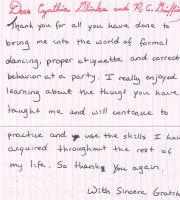 Dear Cynthia Glinka and R.C. Griffin
Thank you for all you have done to
bring me into the world of formal
dancing, proper etiquette and correct
behavior at a party. I really enjoyed
learning about the things you have
taught me and will continue to
practice and use the skills I have
acquired throughout the rest of
my life. So thank you again.
With Sincere